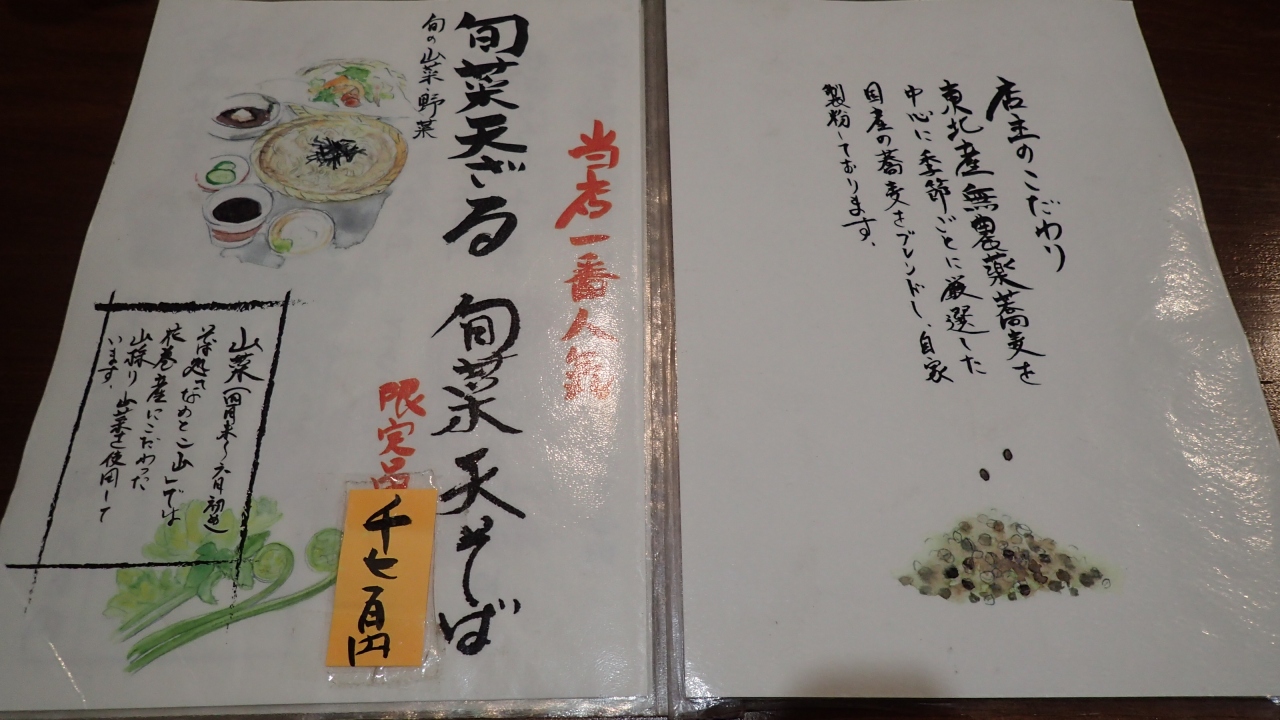 店主のこだわり
東北産無農薬蕎麦を
中心に季節ごとに厳選した
国産の蕎麦をブレンドし、自家
製粉しております。
当店一番人気
旬菜天ざる 旬菜天そば
旬の山菜・野菜
限定品
千七百円
山菜(四月末〜六月初め)
そば処「なめとこ山」では
花巻産にこだわった
山採り山菜を使用して
います。